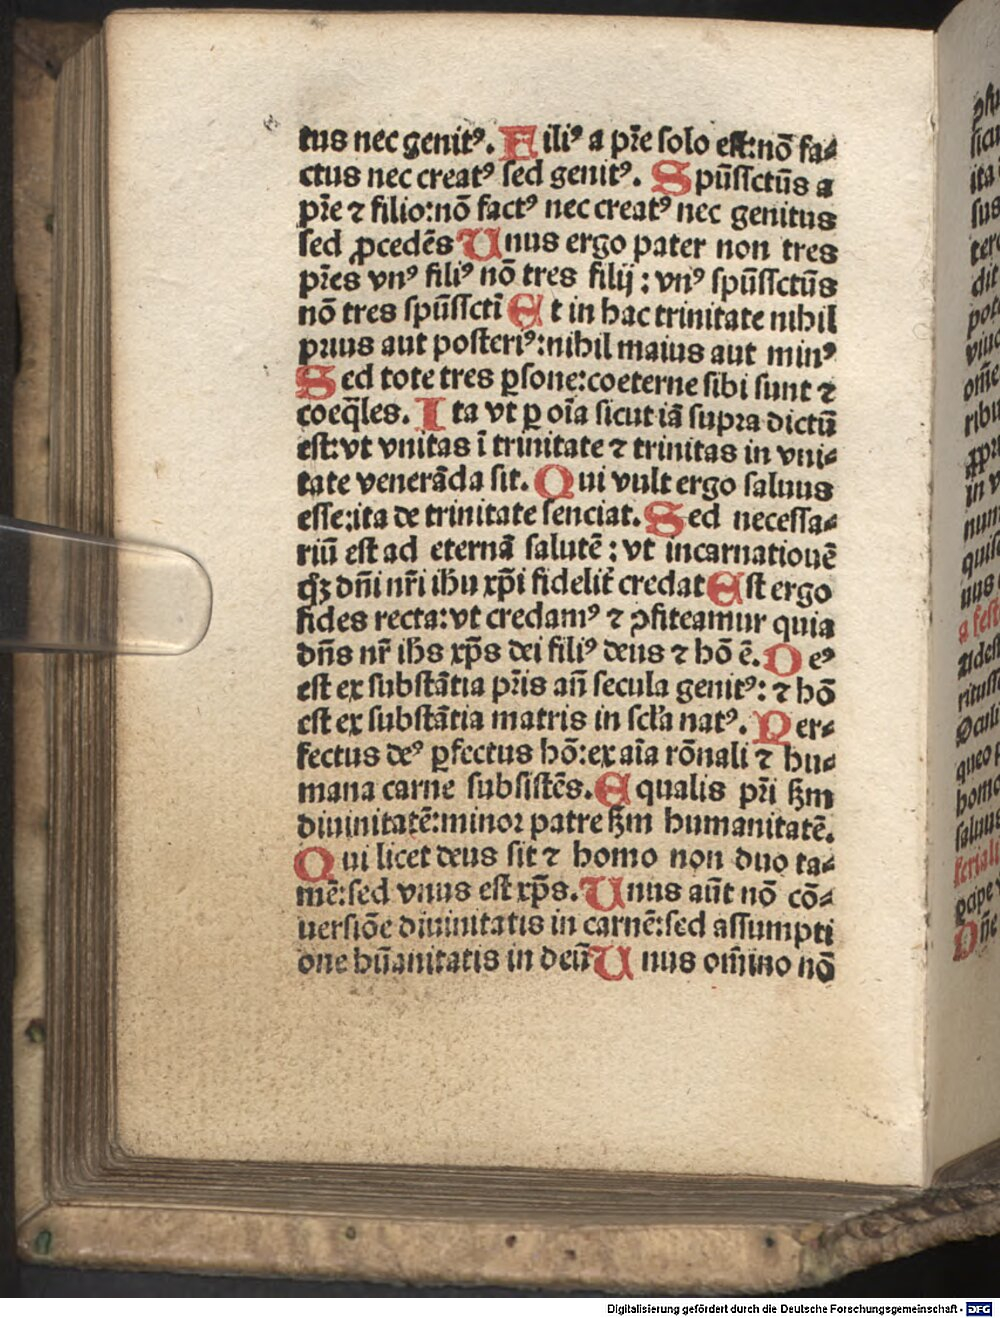 tus nec genitꝰ. Filiꝰ a pr̄e solo est:nō fa⸗
ctus nec creatꝰ sed genitꝰ. Spūssctūs a
pr̄e ⁊ filio:nō factꝰ nec creatꝰ nec genitus
sed ꝓcedēs Unus ergo pater non tres
pr̄es vnꝰ filiꝰ nō tres filij : vnꝰ spūssctūs
nō tres spūsscti Et in hac trinitate nihil
prius aut posteriꝰ:nihil maius aut minꝰ
Sed tote tres ꝑsone:coeterne sibi sunt ⁊
coeq̄les. Ita vt ꝑ oīa sicut iā supra dictū
est:vt vnitas ī trinitate ⁊ trinitas in vni⸗
tate venerāda sit. Qui vult ergo saluus
esse:ita de trinitate senciat. Sed necessa⸗
riū est ad eternā salutē : vt incarnationē
qꝫ dn̄i nr̄i ihu xp̄i fidelit̄ credat Est ergo
fides recta:vt credamꝰ ⁊ ꝯfiteamur quia
dn̄s nr̄ ihs xp̄s dei filiꝰ deus ⁊ hō ē. Deꝰ
est ex substātia pr̄is an̄ secula genitꝰ: ⁊ hō
est ex substātia matris in scl̄a natꝰ. Per⸗
fectus deꝰ ꝑfectus hō:ex aīa rōnali ⁊ hu⸗
mana carne subsistēs. Equalis pr̄i ẜm
diuinitatē:minor patre ẜm humanitatē.
Qui licet deus sit ⁊ homo non duo ta⸗
mē:sed vnus est xp̄s. Unus aūt nō cō⸗
uersiōe diuinitatis in carnē:sed assumpti
one hūanitatis in deū Unus om̄ino nō
Digitalisierung gefördert durch die Deutsche Forschungsgemeinschaft - DFG